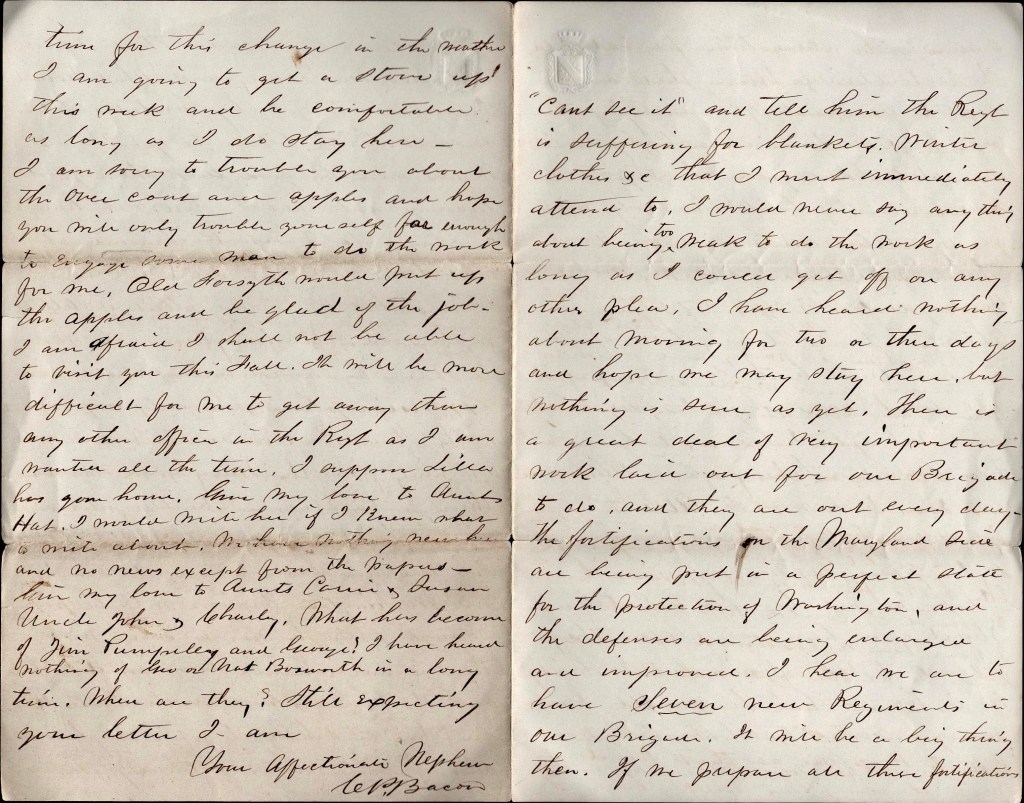 time for this change in the matter
I am going to get a stove up
this week and be comfortable
as long as I do stay here –
I am sorry to trouble you about
the over coat and apples and hope
you will only trouble yourself far enough
to engage some man to do the work
for me, Old Forsyth would put up
the apples and be glad of the job –
I am afraid I shall not be able
to visit you this Fall. It will be more
difficult for me to get away than
any other officer in the Regt as I am
wanted all the time. I suppose Lilla
has gone home. Give my love to Aunt
Hat. I would write her if I knew what
to write about. We have nothing new here
and no news except from the papers –
Give my love to Aunts Carrie & Susan
Uncle John & Charley. What has become
of Jim Pumpelly and George? I have heard
nothing of Geo or Nat Bosworth in a long
time. Where are they? Still expecting
your letter I am
Your Affectionate Nephew
C.P. Bacon
"Cant see it" and tell him the Regt
is suffering for blankets, winter
clothes &c that I must immediately
attend to, I would never say anything
about being too weak to do the work as
long as I could get off on any
other plea, I have heard nothing
about moving for two or three days
and hope we may stay here, but
nothing is sure as yet. There is
a great deal of very important
work laid out for our Brigade
to do, and they are out every day –
the fortifications on the Maryland side
are being put in a perfect state
for the protection of Washington, and
the defenses are being enlarged
and improved. I hear we are to
have Seven new Regiments in
our Brigade. It will be a big thing
then. If we prepare all these fortifications